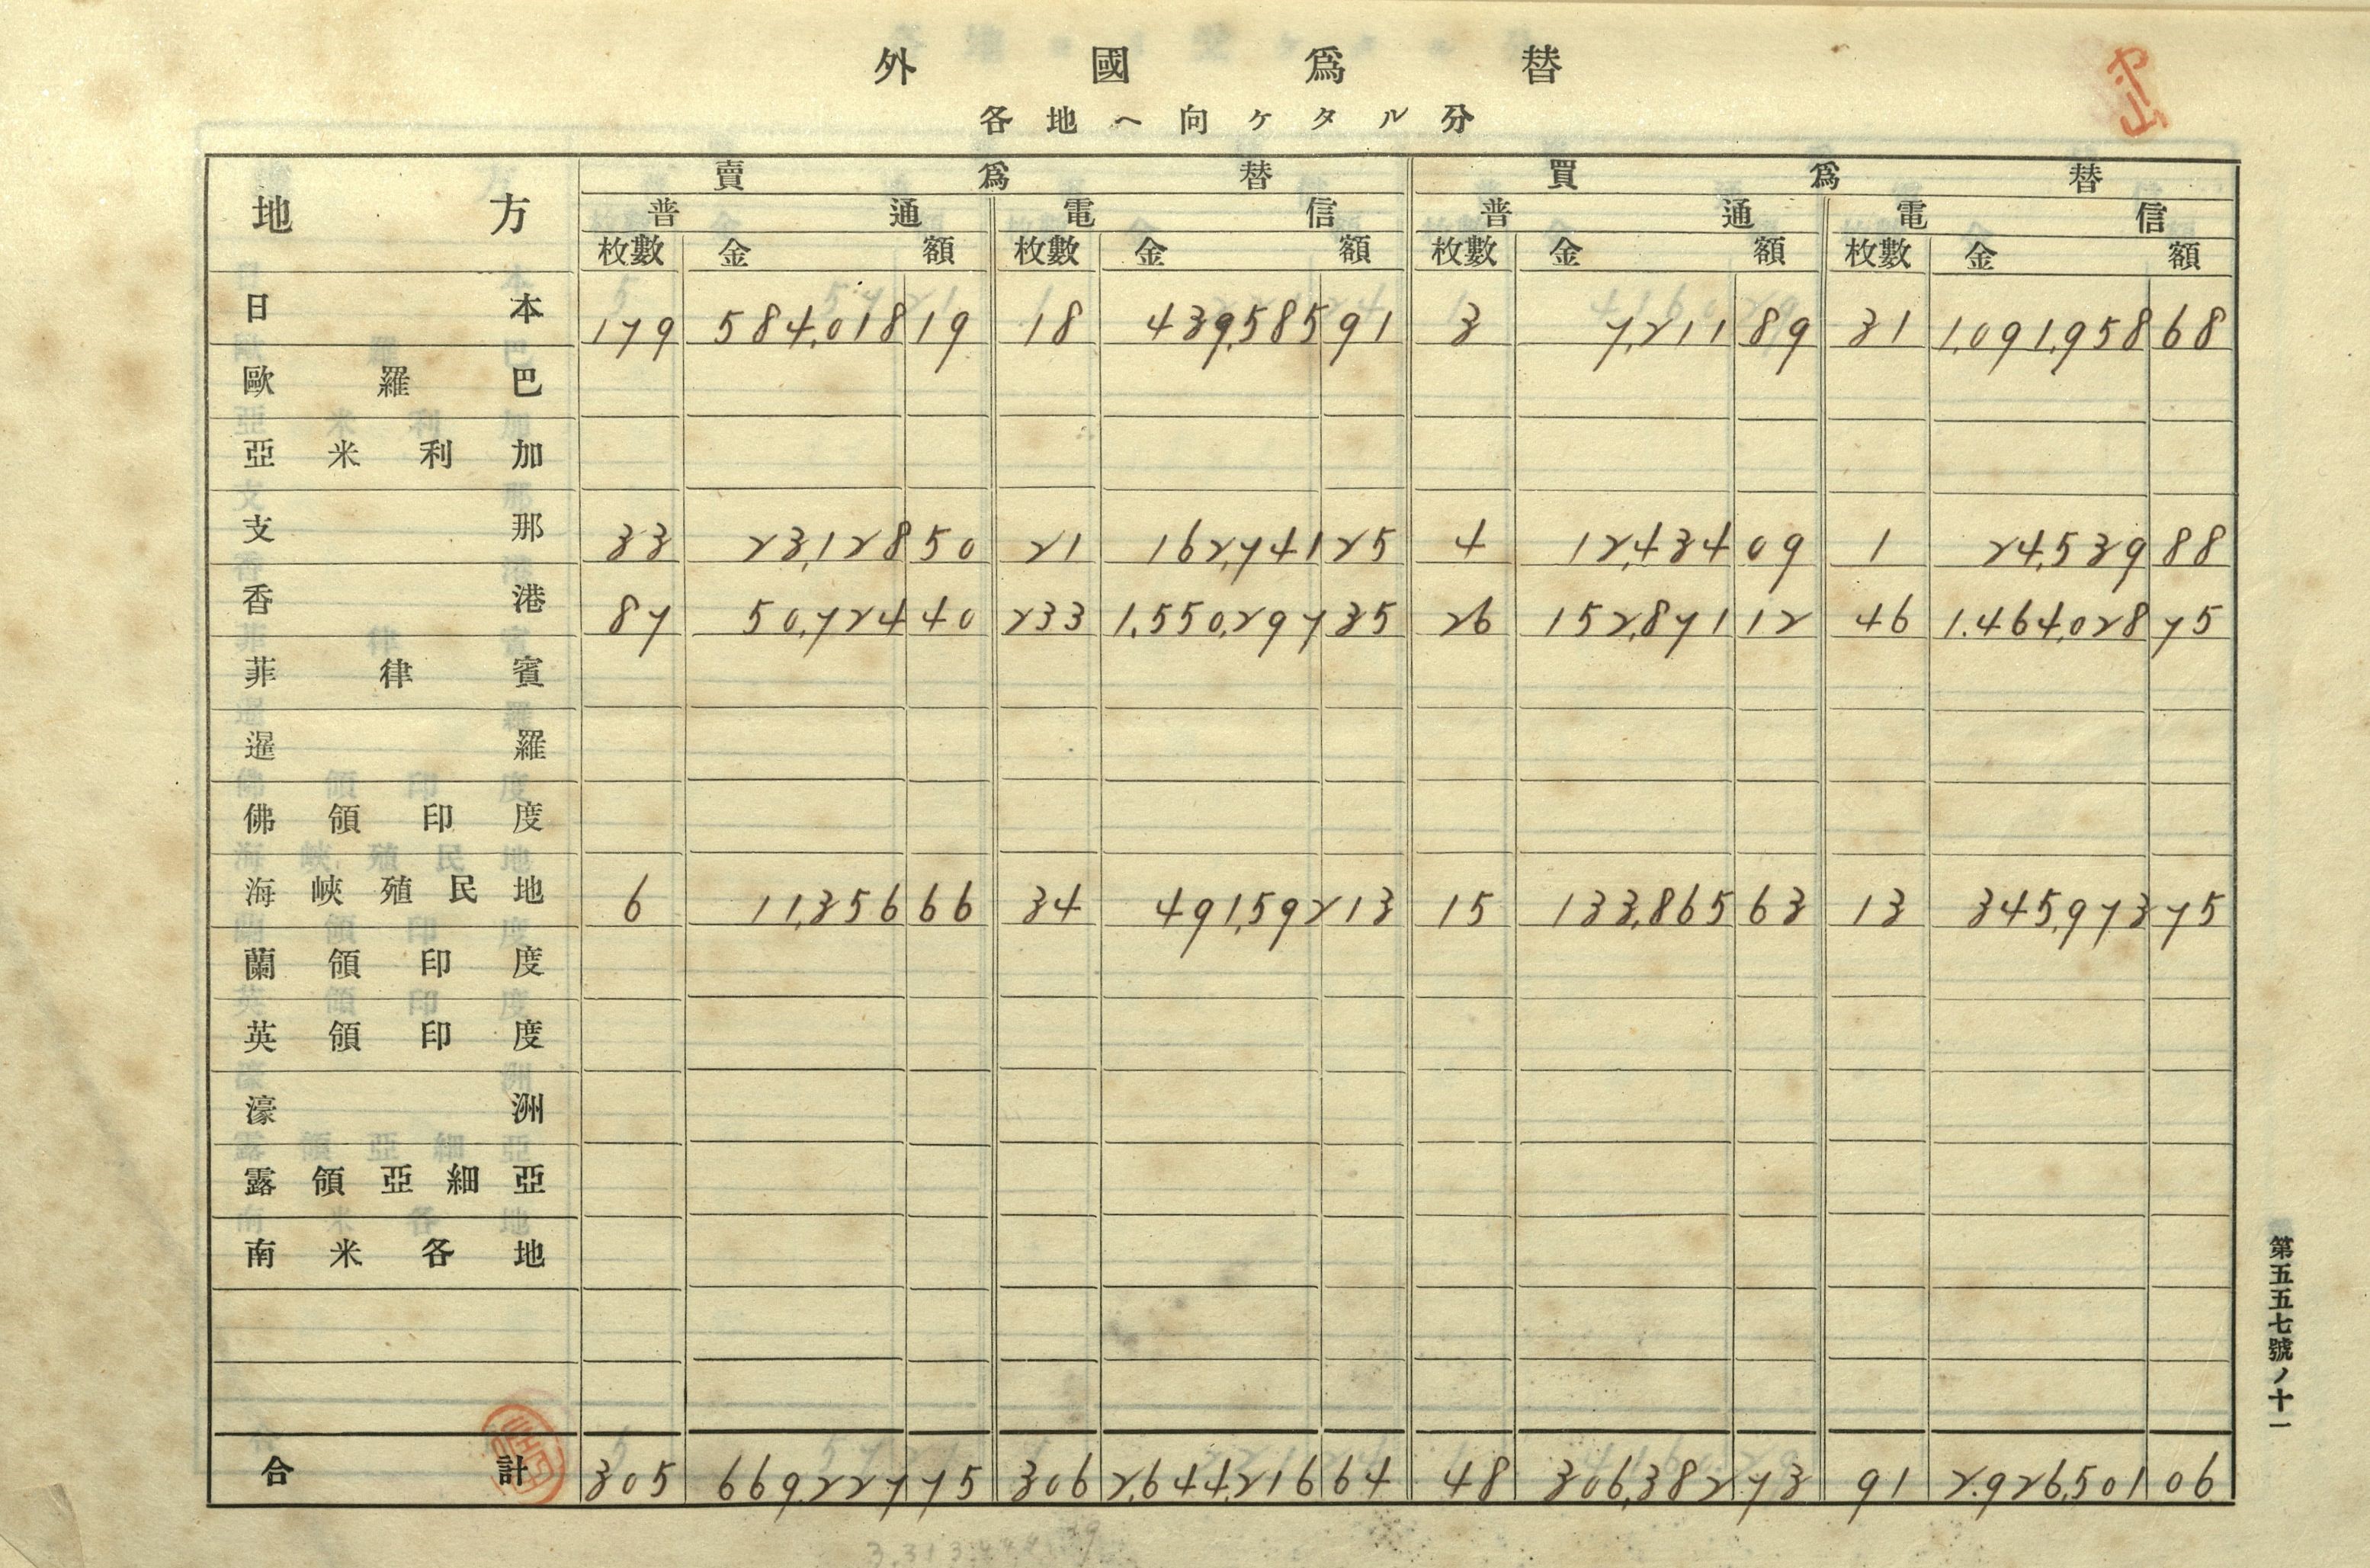 外國爲替
各地ヘ向ケタル分
地方 賣爲替 買爲替
普通 電信 普通 電信
枚數 金額 枚數 金額 枚數 金額 枚數 金額
日本 179 584,018 19 18 439,585 91 3 7,211 89 31 1,091,958 68
歐羅巴
亞米利加
支那 33 23,128 50 21 162,741 25 4 12,434 09 1 24,539 88
香港 87 50,724 40 233 1,550,297 35 26 152,871 12 46 1,464,028 75
菲律賓
暹羅
佛領印度
海峽殖民地 6 11,356 66 34 491,592 13 15 133,865 63 13 345,973 75
蘭領印度
英領印度
濠洲
露領亞細亞
南米各地
合計 305 669,227 75 306 2,644,216 64 48 306,382 73 91 2,926,501 06
3,313,444.39
第五五七號ノ十一